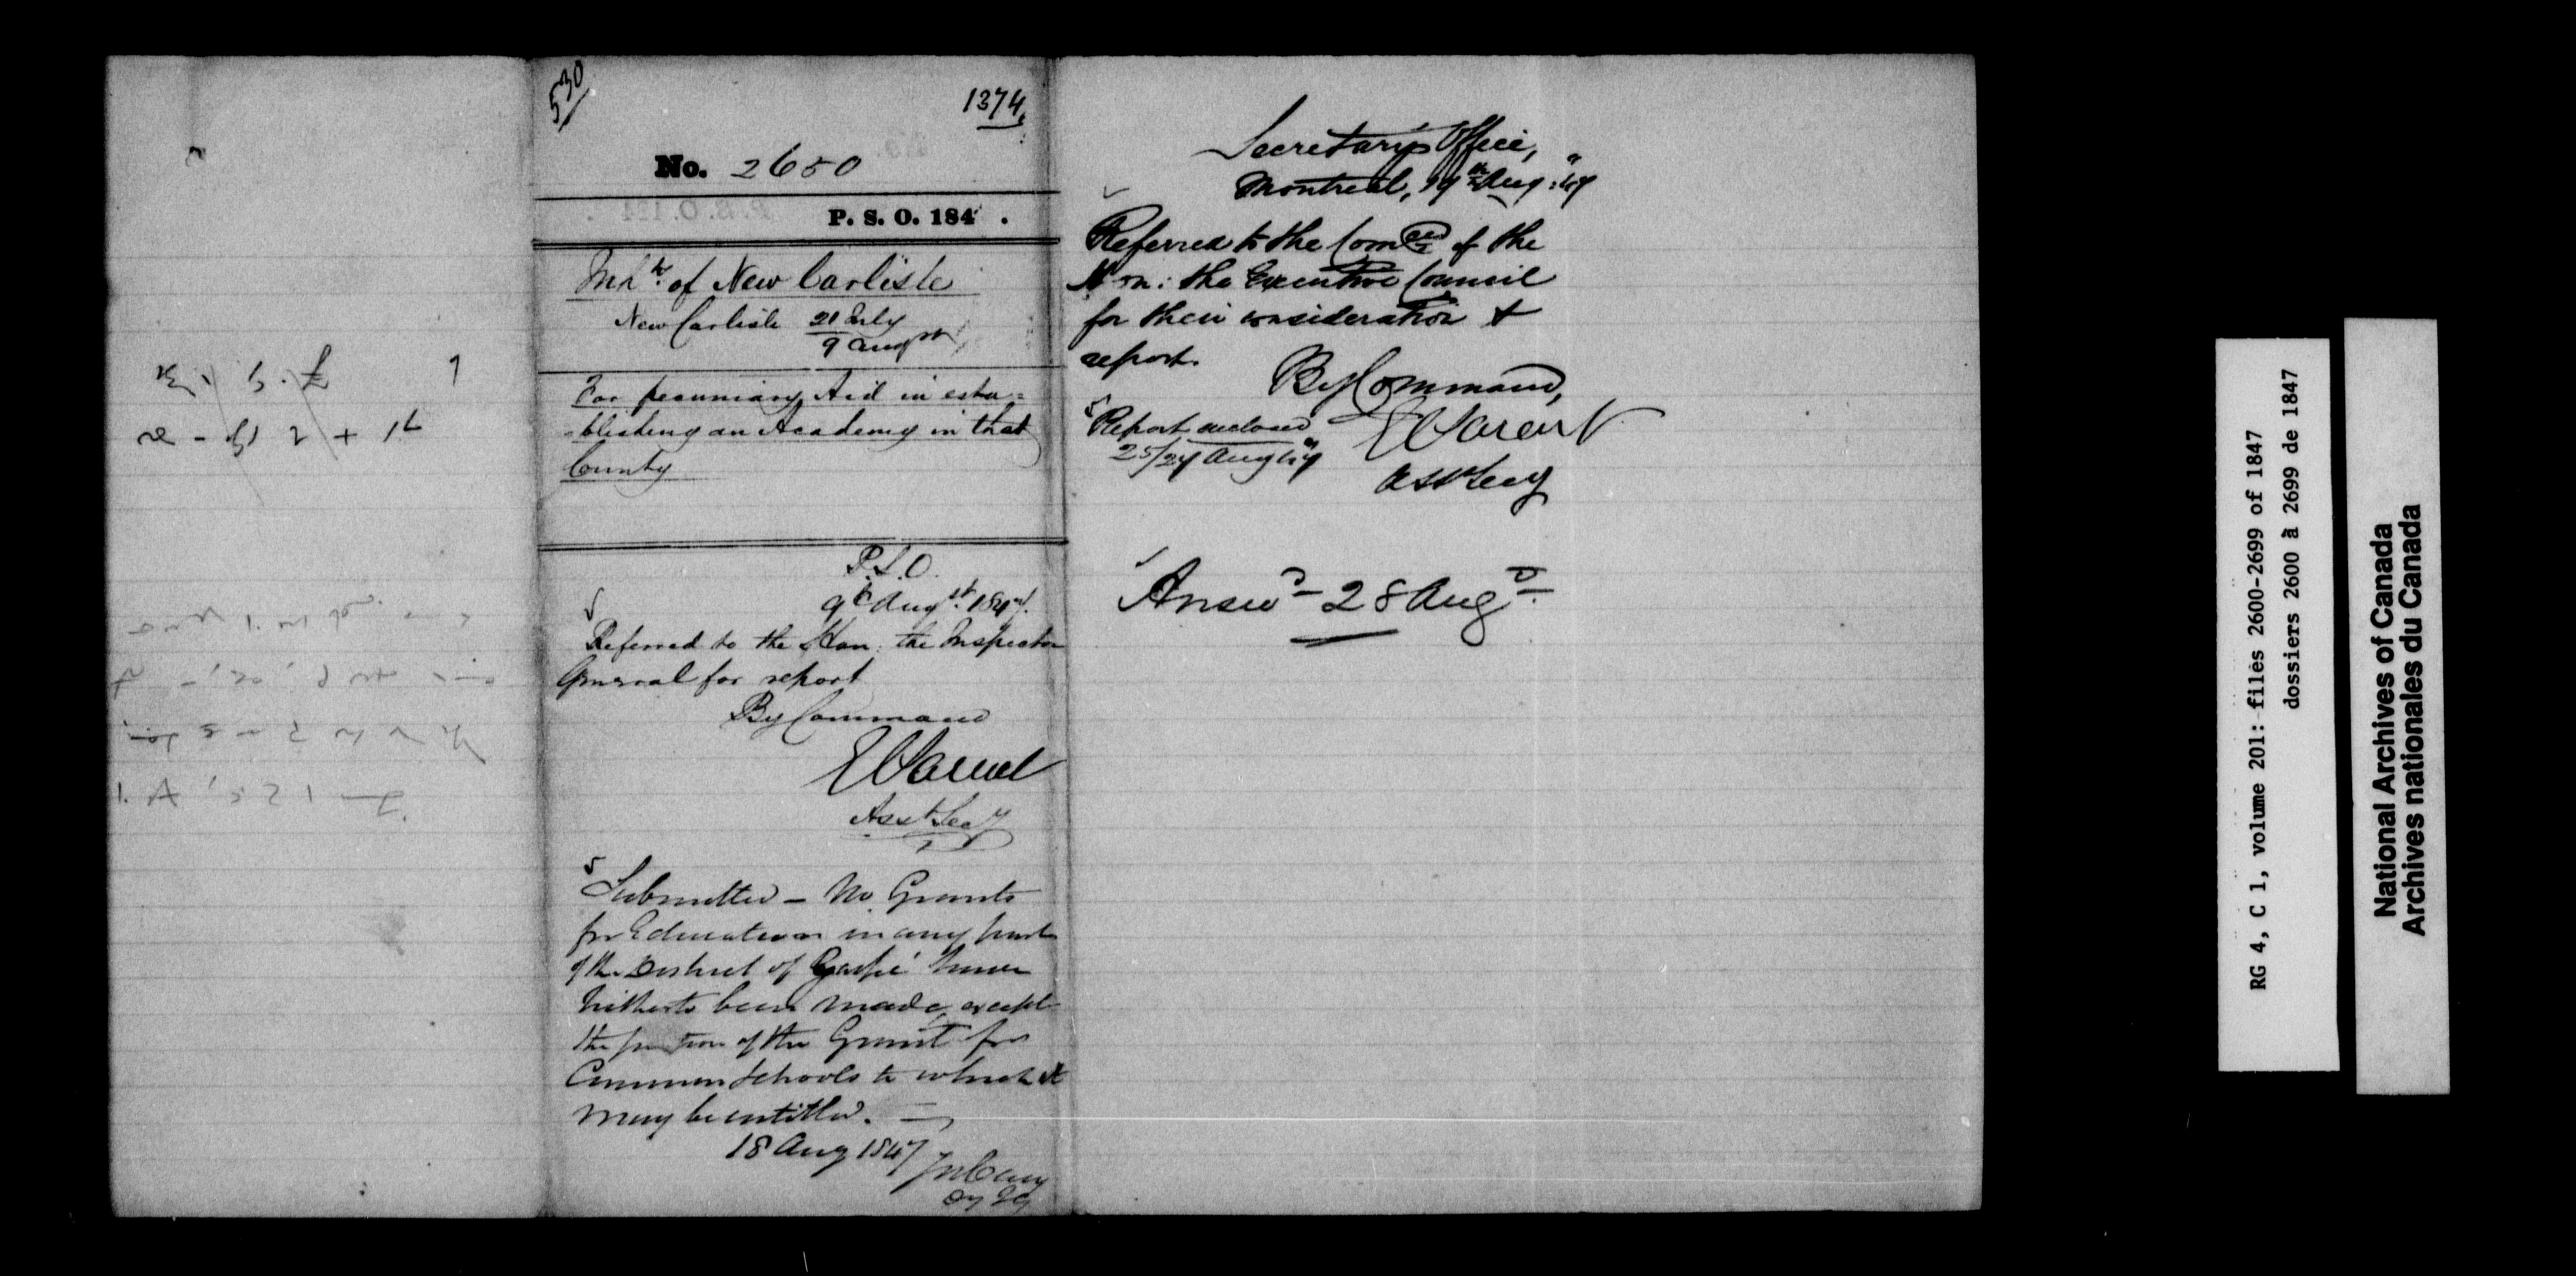 530
1374
No. 2650
P. S. O. 184 .
Inh.ts of New Carlisle
New Carlisle 21 July
9 Augst
For pecuniary Aid in esta=
=blishing an Academy in that
County
P.S.O.
9th Augst. 1847.
Referred to the Hon: the Inspector
General for report
By Command
E Parent
Asst Secy
Submitted – No Grants
for Education in any part
of the District of Gaspé have
hitherto been made, except
the portion of the Grant for
Common Schools to which it
may be entitled. —
18 Aug 1847
Jos Cary
Dy IG
Secretary's Office,
Montreal, 19th Aug: 47
Referred to the Comee of the
Hon: the Executive Council
for their consideration &
report.
By Command,
E Parent
Asst Secy
Report enclosed
25/27 Aug 47
Answd 28 Aug
RG 4, C 1, volume 201: files 2600-2699 of 1847
dossiers 2600 à 2699 de 1847
National Archives of Canada
Archives nationales du Canada